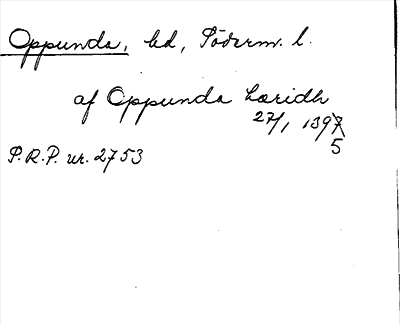 Oppunda, hd, Söderm. l.
af Oppunda hæridh
27/1 1397
5
P.R.P. nr. 2753